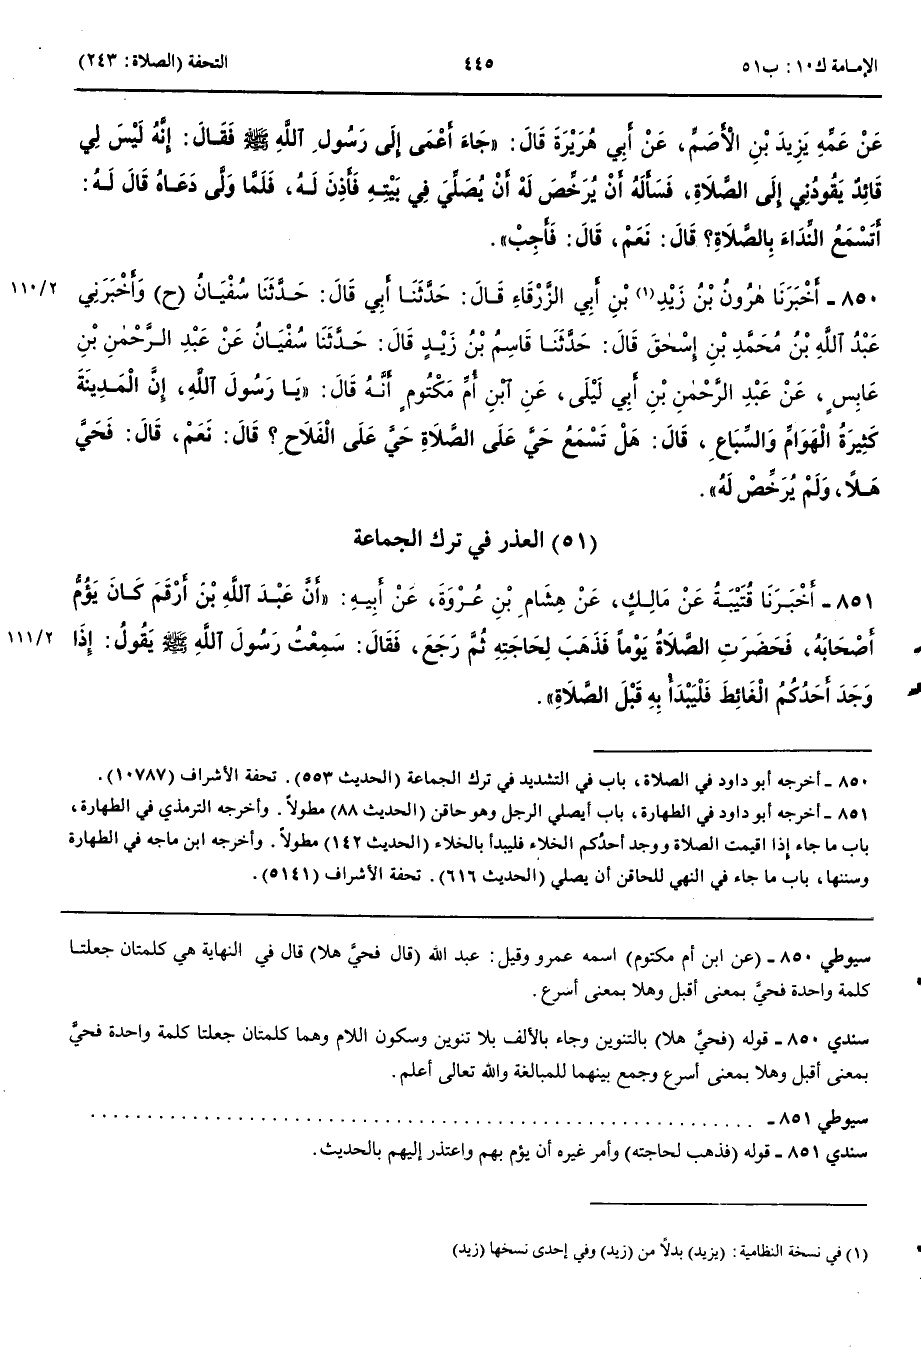 الإمامة ك١٠: ب٥١ ٤٤٥ التحفة (الصلاة: ٢٤٣)
عَنْ عَمِّهِ يَزِيدَ بْنِ الْأَصَمِّ، عَنْ أَبِي هُرَيْرَةَ قَالَ: «جَاءَ أَعْمَى إِلَى رَسُولِ ٱللَّهِ ﷺ فَقَالَ: إِنَّهُ لَيْسَ لِي
قَائِدٌ يَقُودُنِي إِلَى الصَّلَاةِ، فَسَأَلَهُ أَنْ يُرَخِّصَ لَهُ أَنْ يُصَلِّيَ فِي بَيْتِهِ فَأَذِنَ لَهُ، فَلَمَّا وَلَّى دَعَاهُ قَالَ لَهُ:
أَتَسْمَعُ النِّدَاءَ بِالصَّلَاةِ؟ قَالَ: نَعَمْ، قَالَ: فَأَجِبْ».
٨٥٠ ـ أَخْبَرَنَا هٰرُونُ بْنُ زَيْدِ(١) بْنِ أَبِي الزَّرْقَاءِ قَالَ: حَدَّثَنَا أَبِي قَالَ: حَدَّثَنَا سُفْيَانُ (ح) وَأَخْبَرَنِي ١١٠/٢
عَبْدُ ٱللَّهِ بْنُ مُحَمَّدِ بْنِ إِسْحٰقَ قَالَ: حَدَّثَنَا قَاسِمُ بْنُ زَيْدٍ قَالَ: حَدَّثَنَا سُفْيَانُ عَنْ عَبْدِ الرَّحْمٰنِ بْنِ
عَابِسٍ، عَنْ عَبْدِ الرَّحْمٰنِ بْنِ أَبِي لَيْلَى، عَنِ ٱبْنِ أُمِّ مَكْتُومٍ أَنَّهُ قَالَ: «يَا رَسُولَ ٱللَّهِ، إِنَّ الْمَدِينَةَ
كَثِيرَةُ الْهَوَامِّ وَالسِّبَاعِ، قَالَ: هَلْ تَسْمَعُ حَيَّ عَلَى الصَّلَاةِ حَيَّ عَلَى الْفَلَاحِ؟ قَالَ: نَعَمْ، قَالَ: فَحَيَّ
هَلًا، وَلَمْ يُرَخِّصْ لَهُ».
(٥١) العذر في ترك الجماعة
٨٥١ ـ أَخْبَرَنَا قُتَيْبَةُ عَنْ مَالِكٍ، عَنْ هِشَامِ بْنِ عُرْوَةَ، عَنْ أَبِيهِ: «أَنَّ عَبْدَ ٱللَّهِ بْنَ أَرْقَمَ كَانَ يَؤُمُّ
أَصْحَابَهُ، فَحَضَرَتِ الصَّلَاةُ يَوْماً فَذَهَبَ لِحَاجَتِهِ ثُمَّ رَجَعَ، فَقَالَ: سَمِعْتُ رَسُولَ ٱللَّهِ ﷺ يَقُولُ: إِذَا ١١١/٢
وَجَدَ أَحَدُكُمُ الْغَائِطَ فَلْيَبْدَأْ بِهِ قَبْلَ الصَّلَاةِ».
٨٥٠ ـ أخرجه أبو داود في الصلاة، باب في التشديد في ترك الجماعة (الحديث ٥٥٣). تحفة الأشراف (١٠٧٨٧).
٨٥١ ـ أخرجه أبو داود في الطهارة، باب أيصلي الرجل وهو حاقن (الحديث ٨٨) مطولاً. وأخرجه الترمذي في الطهارة،
باب ما جاء إذا اقيمت الصلاة ووجد أحدُكم الخلاء فليبدأ بالخلاء (الحديث ١٤٢) مطولاً. وأخرجه ابن ماجه في الطهارة
وسننها، باب ما جاء في النهي للحاقن أن يصلي (الحديث ٦١٦). تحفة الأشراف (٥١٤١).
سيوطي ٨٥٠ ـ (عن ابن أم مكتوم) اسمه عمرو وقيل: عبد الله (قال فحيَّ هلا) قال في النهاية هي كلمتان جعلتا
كلمة واحدة فحيَّ بمعنى أقبل وهلا بمعنى أسرع.
سندي ٨٥٠ ـ قوله (فحيَّ هلا) بالتنوين وجاء بالألف بلا تنوين وسكون اللام وهما كلمتان جعلتا كلمة واحدة فحيَّ
بمعنى أقبل وهلا بمعنى أسرع وجمع بينهما للمبالغة والله تعالى أعلم.
سيوطي ٨٥١ ـ ..........................................................
سندي ٨٥١ ـ قوله (فذهب لحاجته) وأمر غيره أن يؤم بهم واعتذر إليهم بالحديث.
(١) في نسخة النظامية: (يزيد) بدلًا من (زيد) وفي إحدى نسخها (زيد)